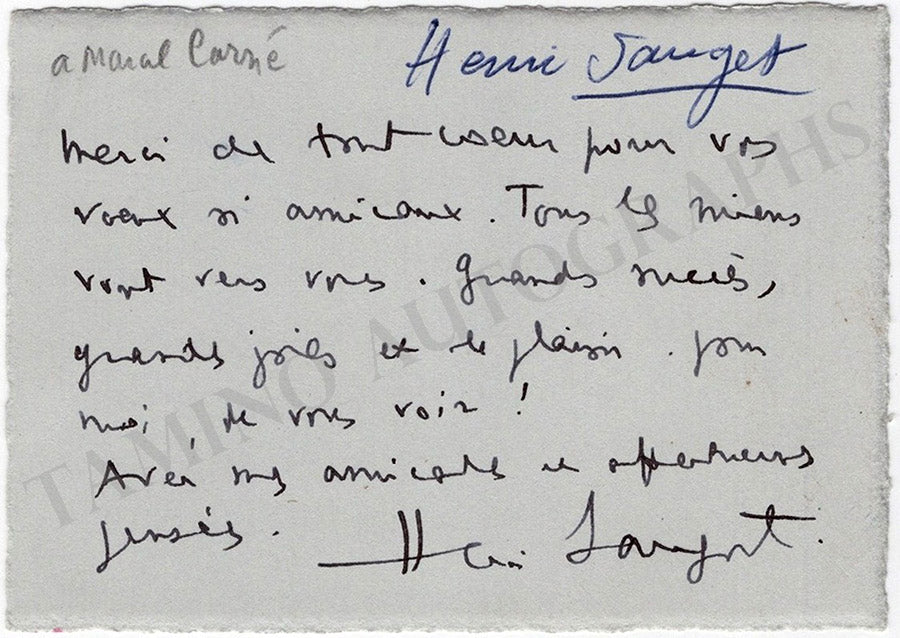 a Marcel Carné
Henri Sauguet
Merci de tout coeur pour vos
voeux si amicaux. Tous les miens
vont vers vous. Grands succès,
grandes joies et le plaisir. pour
moi, de vous voir !
Avec mes amicales et affectueuses
pensées.
Henri Sauguet.
TAMINO AUTOGRAPHS